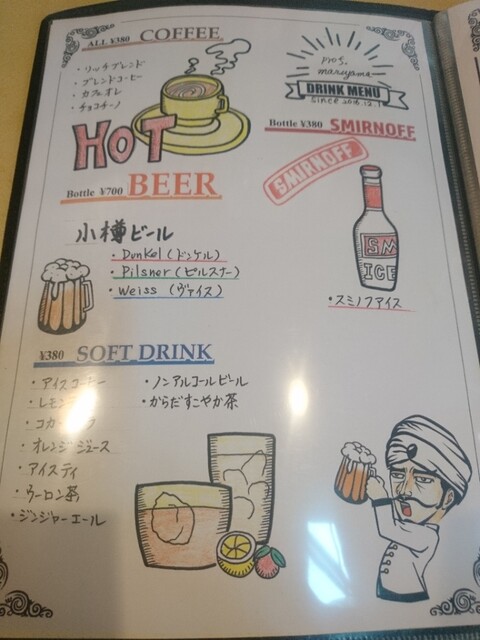 ALL ¥380 COFFEE
・リッチブレンド
・ブレンドコーヒー
・カフェオレ
・チョコチーノ
HOT
pros.
maruyama
DRINK MENU
since 2018.12.1
Bottle ¥380 SMIRNOFF
SMIRNOFF
SM
ICE
・スミノフアイス
Bottle ¥700 BEER
小樽ビール
・Dunkel（ドンケル）
・Pilsner（ピルスナー）
・Weiss（ヴァイス）
¥380 SOFT DRINK
・アイスコーヒー
・レモン
・コカ
・オレンジジュース
・アイスティ
・ウーロン茶
・ジンジャーエール
・ノンアルコールビール
・からだすこやか茶